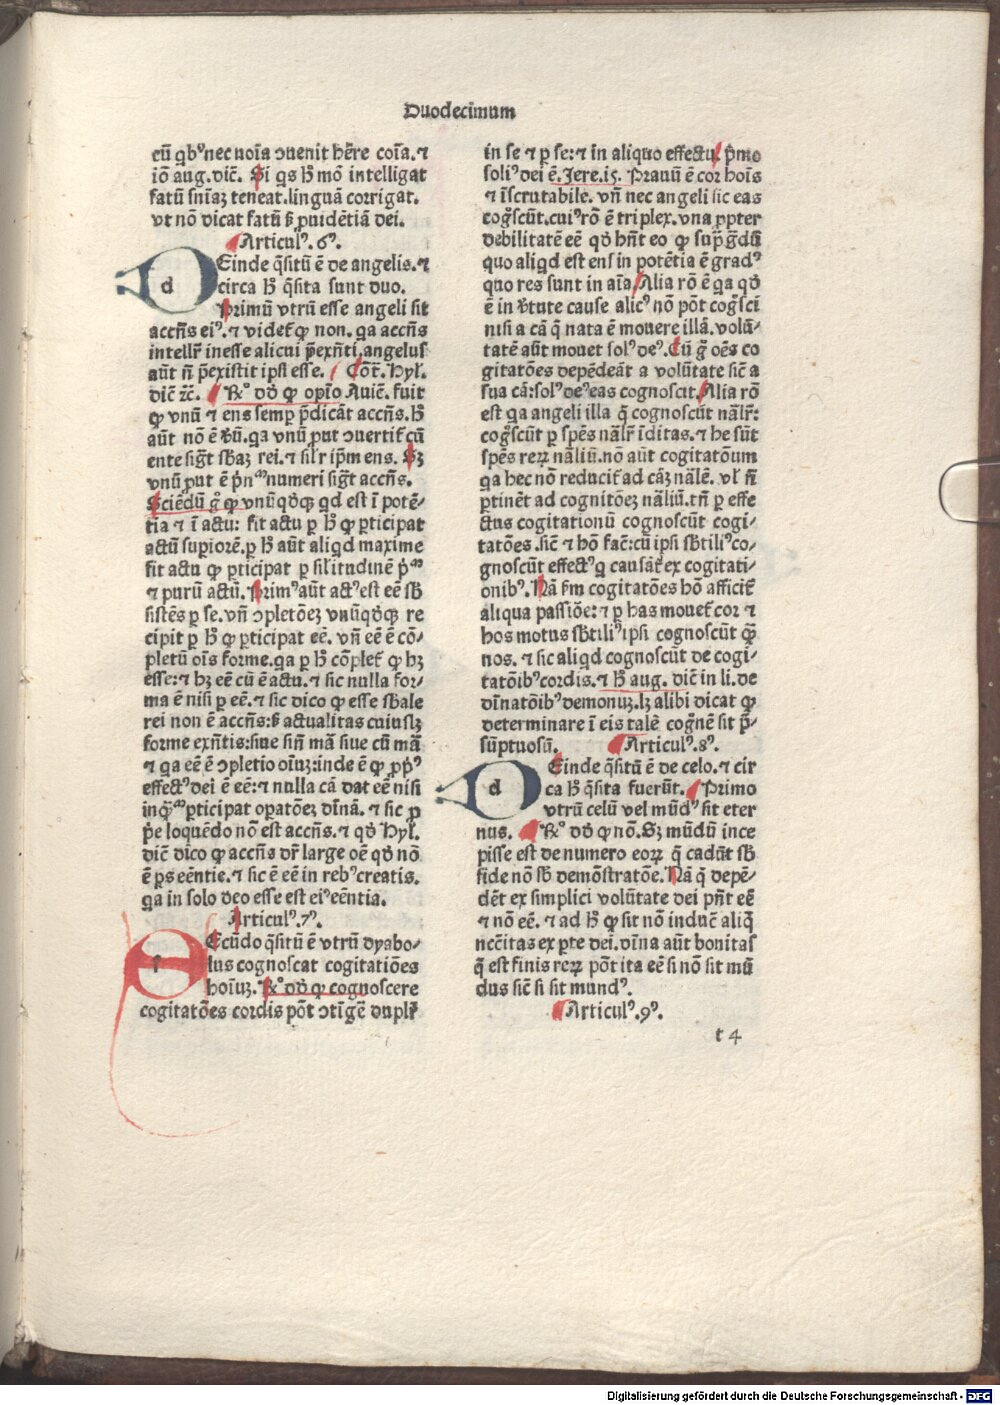 Duodecimum
cū qbꝰ nec noīa ↄuenit hēre coīa. ⁊
iō aug. dic̄. Si qs h̄ mō intelligat
fatū sn̄iaꝫ teneat. linguā corrigat.
vt nō dicat fatū sꝫ ꝓuidētiā dei.
Articulꝰ. 6ꝰ.
d Einde q̄situ ē de angelis. ⁊
circa h̄ q̄sita sunt duo.
Primū vtrū esse angeli sit
accn̄s eiꝰ. ⁊ videt̄ ꝙ non. qa accn̄s
intellr̄ inesse alicui p̄exn̄ti. angelus
aūt n̄ p̄existit ipsi esse. Cōt̄. Hyl̄.
dic̄ ⁊c̄. R̄ꝰ dō̄ ꝙ opīo Auic̄. fuit
ꝙ vnū ⁊ ens semꝑ p̄dicāt accn̄s. h̄
aūt nō ē v̄ū. qa vnū ꝓut ↄuertit̄ cū
ente siḡt sb̄aꝫ rei. ⁊ sil̄r ip̄m ens. Sꝫ
vnū ꝓut ē p̄nᵐ numeri siḡt accn̄s.
Sciēdū gͦ ꝙ vnūqd̄qꝫ qd est ī potē-
tia ⁊ ī actu: fit actu ꝑ h̄ ꝙ ꝑticipat
actū superiorē. ꝑ h̄ aūt aliqd maxime
fit actu ꝙ ꝑticipat ꝑ sil̄itudinē p̄ᵐ
⁊ purū actū. Primꝰ aūt actꝰ est eē sb̄
sistēs ꝑ se. vn̄ ↄpletōeꝫ vnūqd̄qꝫ re
cipit ꝑ h̄ ꝙ ꝑticipat eē. vn̄ eē ē cō-
pletū oīs forme. qa ꝑ h̄ cōplet̄ ꝙ hꝫ
esse: ⁊ hꝫ eē cū ē actu. ⁊ sic nulla for-
ma ē nisi ꝑ eē. ⁊ sic dico ꝙ esse sb̄ale
rei non ē accn̄s: sꝫ actualitas cuiuslꝫ
forme exn̄tis: siue sin̄ mā siue cū mā
⁊ qa eē ē ↄpletio oīuꝫ: inde ē ꝙ ꝓpꝰ
effectꝰ dei ē eē: ⁊ nulla cā dat eē nisi
inq̄ᵐ ꝑticipat oꝑatōeꝫ dīnā. ⁊ sic ꝓ
p̄e loquēdo nō est accn̄s. ⁊ qd̄ Hyl̄.
dic̄ dico ꝙ accn̄s dr̄ large oē qd̄ nō
ē ꝑs eēntie. ⁊ sic ē eē in rebꝰ creatis.
qa in solo deo esse est eiꝰ eēntia.
Articulꝰ. 7ꝰ.
s Ecūdo q̄situ ē vtrū dyabo-
lus cognoscat cogitatiōes
hoīuꝫ. R̄ꝰ dō̄ ꝙ cognoscere
cogitatōes cordis pōt ↄtīgē duplr̄
in se ⁊ ꝑ se: ⁊ in aliquo effectu. p̄mo
soliꝰ dei ē. Jere. i5. Prauū ē cor hoīs
⁊ īscrutabile. vn̄ nec angeli sic eas
coḡscūt. cuiꝰ rō ē triplex. vna ꝓpter
debilitatē eē qd̄ hn̄t eo ꝙ sup̄ḡdū
quo aliqd est ens in potētia ē gradꝰ
quo res sunt in aīa. Alia rō ē qa qd̄
ē in v̄tute cause alicꝰ nō pōt coḡsci
nisi a cā q̄ nata ē mouere illā. volū-
tatē aūt mouet solꝰ deꝰ. Cū g̊ oēs co
gitatōes depēdeāt a volūtate sic̄ a
sua cā: solꝰ deꝰ eas cognoscit. Alia rō
est qa angeli illa q̄ cognoscūt nāl̄r:
coḡscūt ꝑ spēs nāl̄r īditas. ⁊ he sūt
spēs reꝝ nāliū. nō aūt cogitatōum
qa hec nō reducit̄ ad cāꝫ nālē. vl̄ n̄
ꝑtinēt ad cognitōeꝫ nāliū. tn̄ ꝑ effe
ctus cogitationū cognoscūt cogi-
tatōes. sic̄ ⁊ hō fac̄: cū ipsi sb̄tiliꝰ co-
gnoscūt effectꝰ q causāt̄ ex cogitati-
onibꝰ. Nā ẜm cogitatōes hō afficit̄
aliqua passiōe: ⁊ ꝑ has mouet̄ cor ⁊
hos motus sb̄tiliꝰ ipsi cognoscūt q̄
nos. ⁊ sic aliqd cognoscūt de cogi-
tatōibꝰ cordis. ⁊ h̄ aug. dic̄ in li. de
dīnatōibꝰ demonuꝫ. lꝫ alibi dicat ꝙ
determinare ī eis talē cogn̄ē sit p̄-
sūptuosū. Articulꝰ. 8ꝰ.
d Einde q̄sitū ē de celo. ⁊ cir
ca h̄ q̄sita fuerūt. Primo
vtrū celū vel mūdꝰ sit eter
nus. R̄ꝰ dō̄ ꝙ nō. Sꝫ mūdū ince
pisse est de numero eoꝝ q̄ cadūt sb̄
fide nō sb̄ demōstratōe. Nā q̄ depē-
dēt ex simplici volūtate dei pn̄t eē
⁊ nō eē. ⁊ ad h̄ ꝙ sit nō induc̄ aliq̄
necc̄itas ex ꝑte dei. dīna aūt bonitas
q̄ est finis reꝝ pōt ita eē si nō sit mū
dus sic̄ si sit mundꝰ.
Articulꝰ. 9ꝰ.
t 4
Digitalisierung gefördert durch die Deutsche Forschungsgemeinschaft - DFG